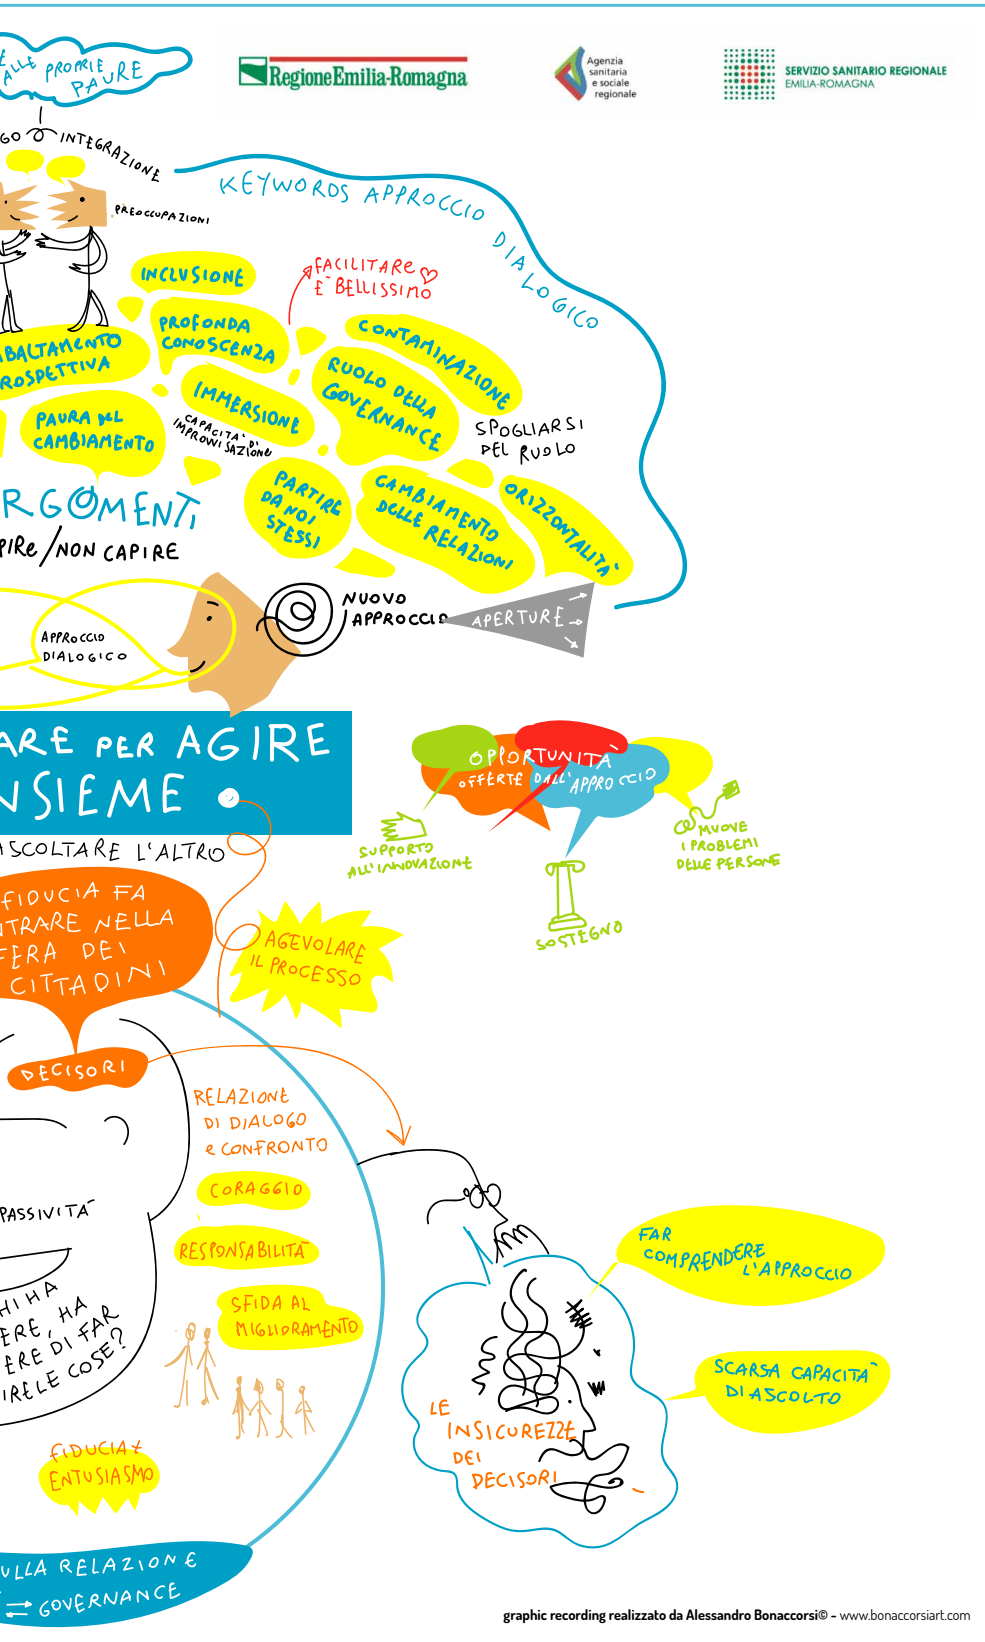 ALLE PROPRIE
PAURE
RegioneEmilia-Romagna
Agenzia
sanitaria
e sociale
regionale
SERVIZIO SANITARIO REGIONALE
EMILIA-ROMAGNA
GO INTEGRAZIONE
PREOCCUPAZIONI
KEYWORDS APPROCCIO DIALOGICO
INCLUSIONE
FACILITARE
È BELLISSIMO
PROFONDA
CONOSCENZA
CONTAMINAZIONE
BALTAMENTO
ROSPETTIVA
RUOLO DELLA
GOVERNANCE
IMMERSIONE
CAPACITÀ DI
IMPROVVISAZIONE
PAURA DEL
CAMBIAMENTO
SPOGLIARSI
DEL RUOLO
PARTIRE
DA NOI
STESSI
CAMBIAMENTO
DELLE RELAZIONI
ORIZZONTALITÀ
RGOMENTI
PIRE/NON CAPIRE
NUOVO
APPROCCIO
APERTURE
APPROCCIO
DIALOGICO
ARE PER AGIRE
NSIEME
ASCOLTARE L'ALTRO
OPPORTUNITÀ
OFFERTE DALL'APPROCCIO
SUPPORTO
ALL'INNOVAZIONE
SOSTEGNO
MUOVE
I PROBLEMI
DELLE PERSONE
FIDUCIA FA
NTRARE NELLA
FERA DEI
CITTADINI
AGEVOLARE
IL PROCESSO
DECISORI
RELAZIONE
DI DIALOGO
e CONFRONTO
CORAGGIO
RESPONSABILITÀ
SFIDA AL
MIGLIORAMENTO
PASSIVITÀ
HI HA
ERE, HA
ERE DI FAR
IRE LE COSE?
FIDUCIA E
ENTUSIASMO
FAR
COMPRENDERE
L'APPROCCIO
SCARSA CAPACITÀ
DI ASCOLTO
LE
INSICUREZZE
DEI
DECISORI
ULLA RELAZIONE
GOVERNANCE
graphic recording realizzato da Alessandro Bonaccorsi© – www.bonaccorsiart.com